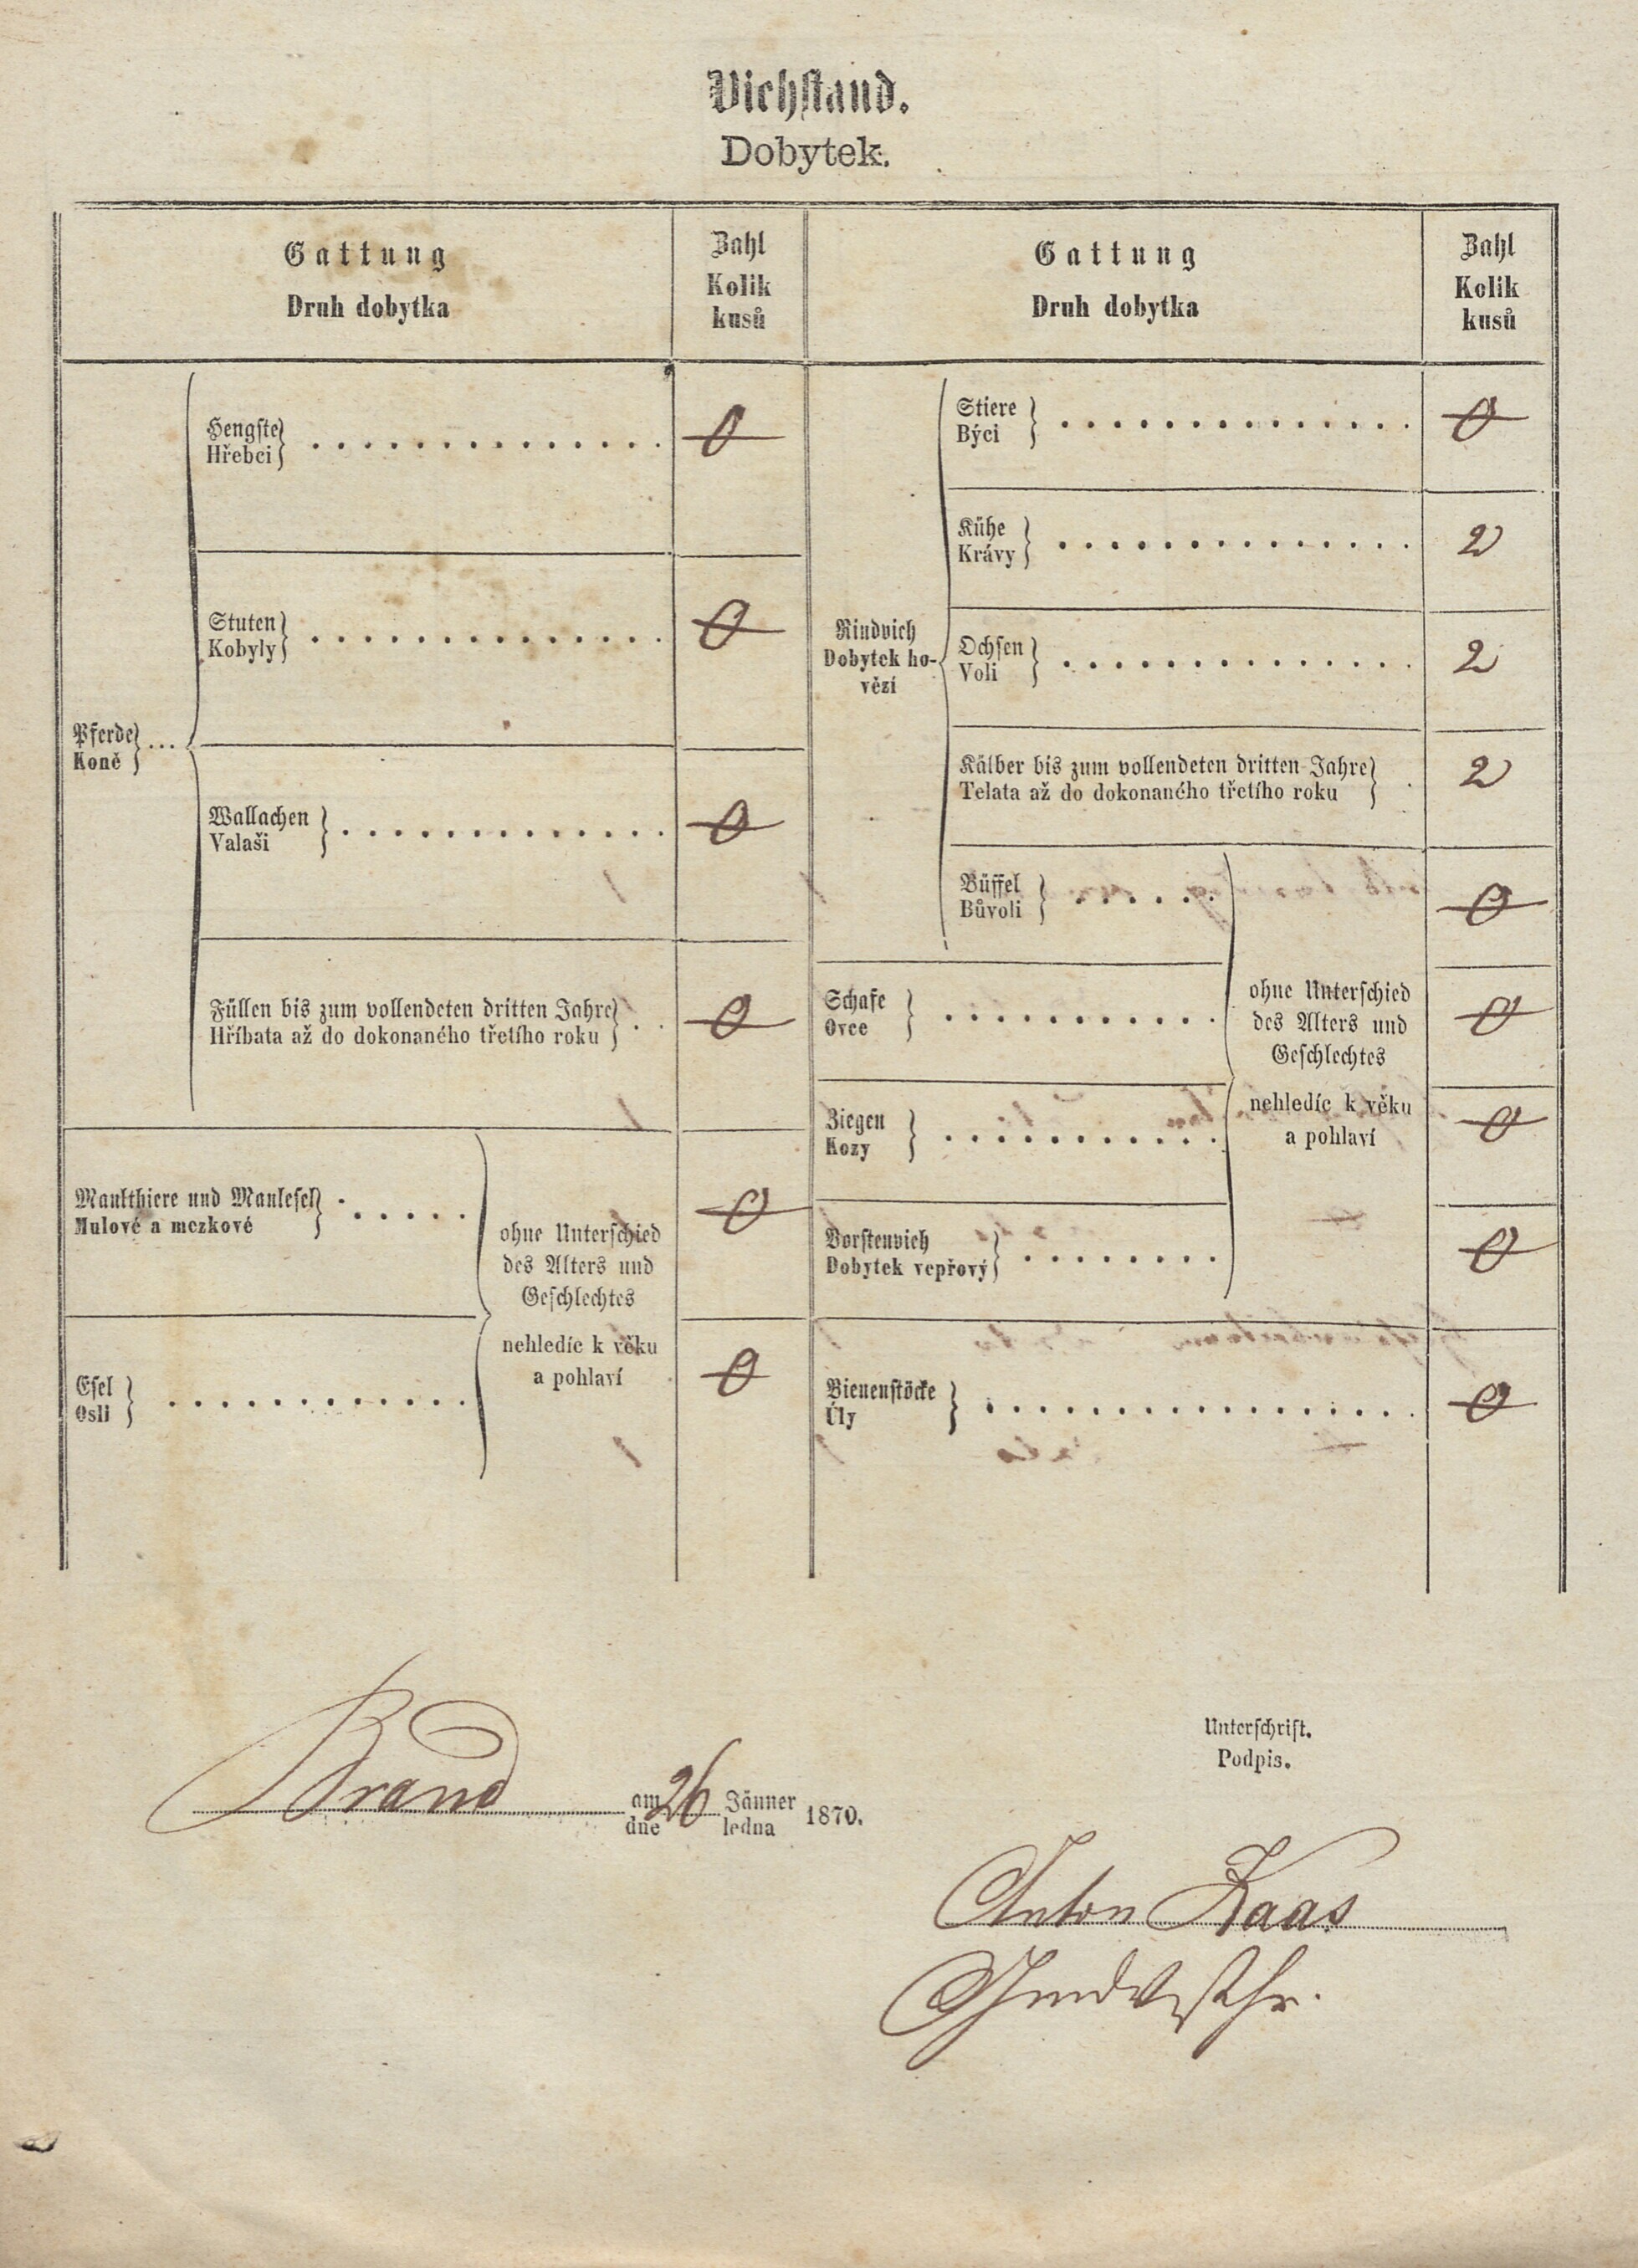 Viehstand.
Dobytek.
Gattung
Druh dobytka
Zahl
Kolik
kusů
Gattung
Druh dobytka
Zahl
Kolik
kusů
Pferde
Koně
Hengste
Hřebci
0
Stuten
Kobyly
0
Wallachen
Valaši
0
Füllen bis zum vollendeten dritten Jahre
Hříbata až do dokonaného třetího roku
0
Maulthiere und Maulesel
Mulové a mezkové
0
Esel
Osli
0
ohne Unterschied
des Alters und
Geschlechtes
nehledíc k věku
a pohlaví
Rindvieh
Dobytek ho-
vězí
Stiere
Býci
0
Kühe
Krávy
2
Ochsen
Voli
2
Kälber bis zum vollendeten dritten Jahre
Telata až do dokonaného třetího roku
2
Büffel
Bůvoli
0
Schafe
Ovce
0
Ziegen
Kozy
0
Borstenvieh
Dobytek vepřový
0
ohne Unterschied
des Alters und
Geschlechtes
nehledíc k věku
a pohlaví
Bienenstöcke
Úly
0
Brand am 26 Jänner 1870.
dne ledna
Unterschrift.
Podpis.
Anton Kaas